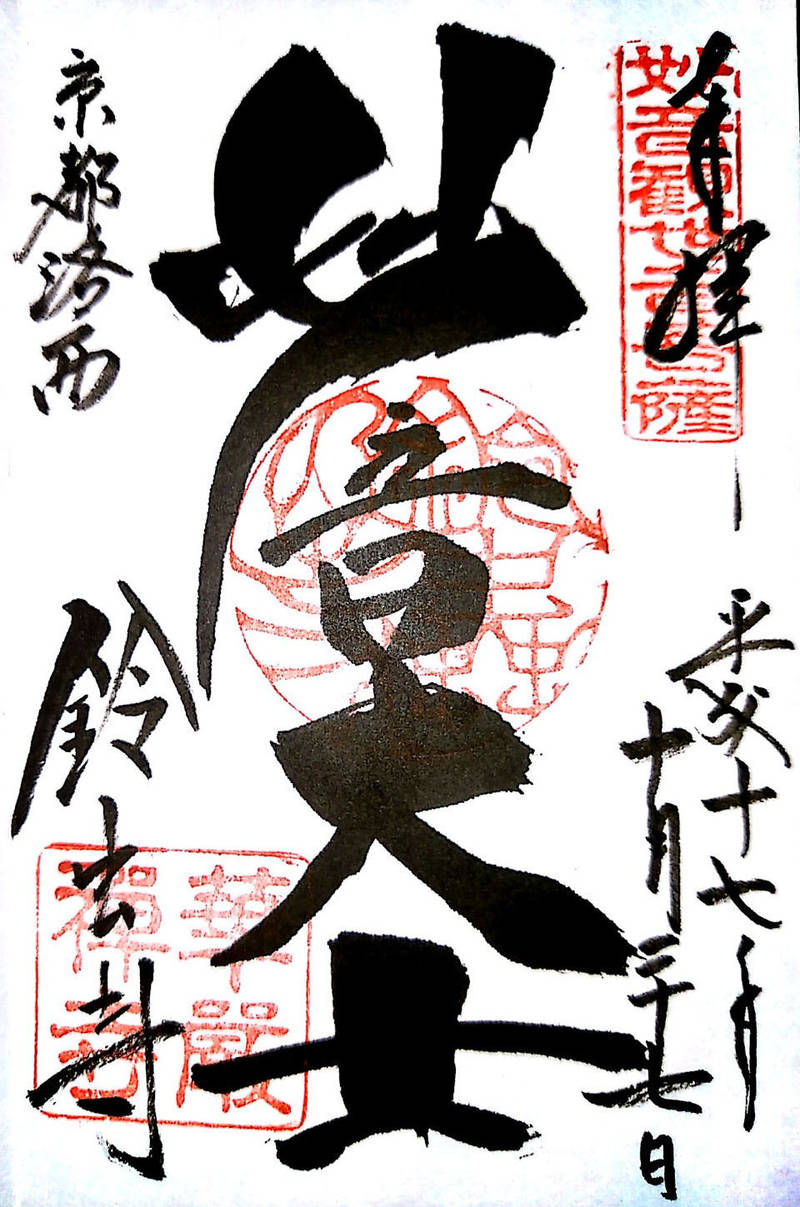 奉拝
妙音觀世音菩薩
平成十七年
十月二十七日
妙音大士
京都洛西
鈴虫寺
華嚴
禪寺